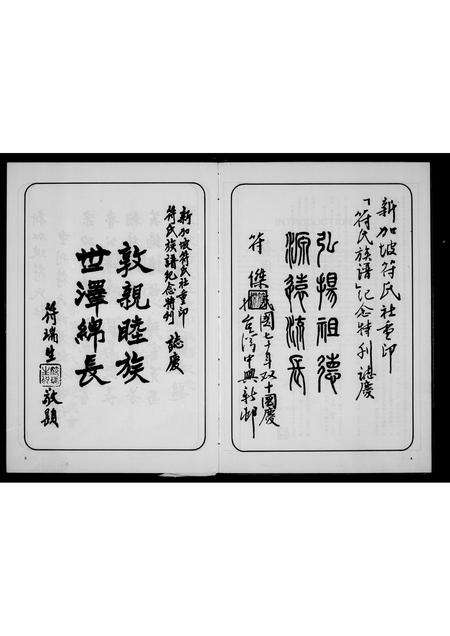 新加坡符氏社重印
「符氏族譜」紀念特刊誌慶
弘揚祖德
源遠流長
民國七十年双十國慶
符傑於台灣中興新邨
新加坡符氏社重印
符氏族譜紀念特刊
誌慶
敦親睦族
世澤綿長
符瑞生
敬題